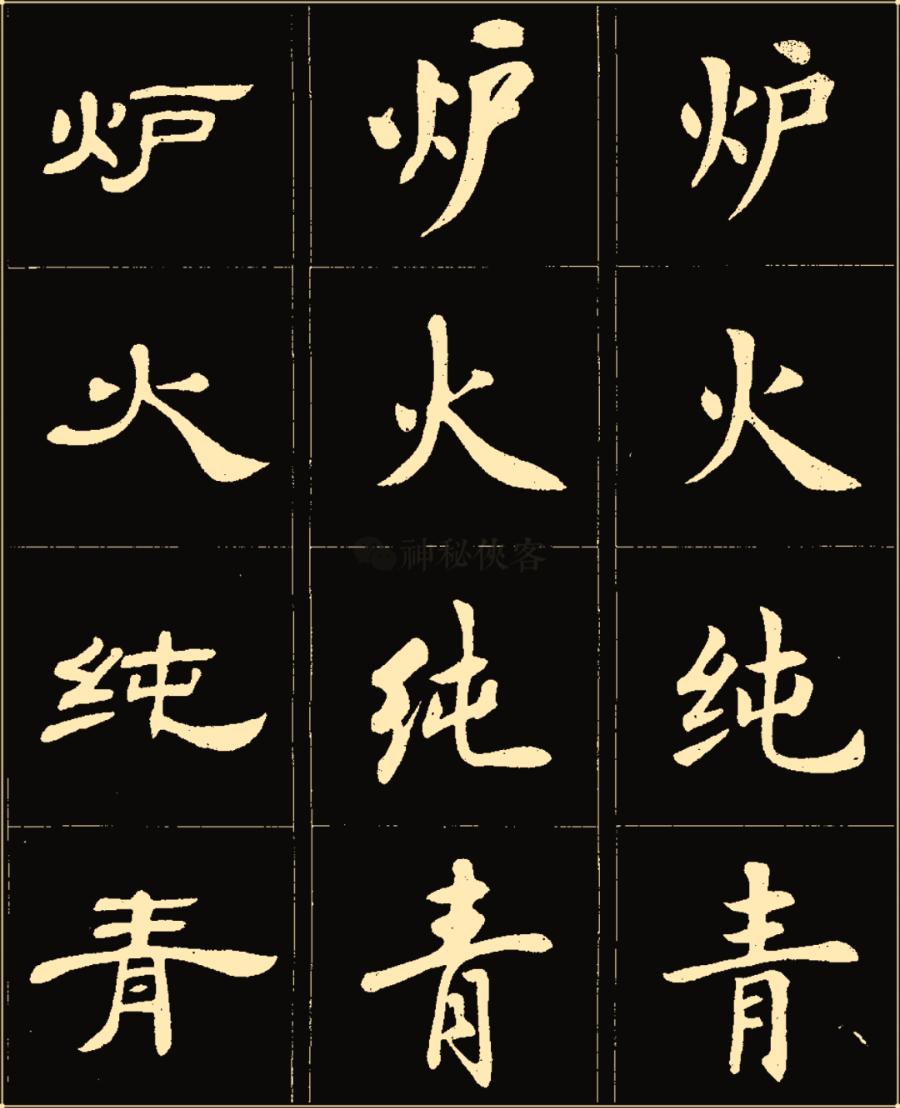 炉 炉 炉
火 火 火
神秘侠客
纯 纯 纯
青 青 青